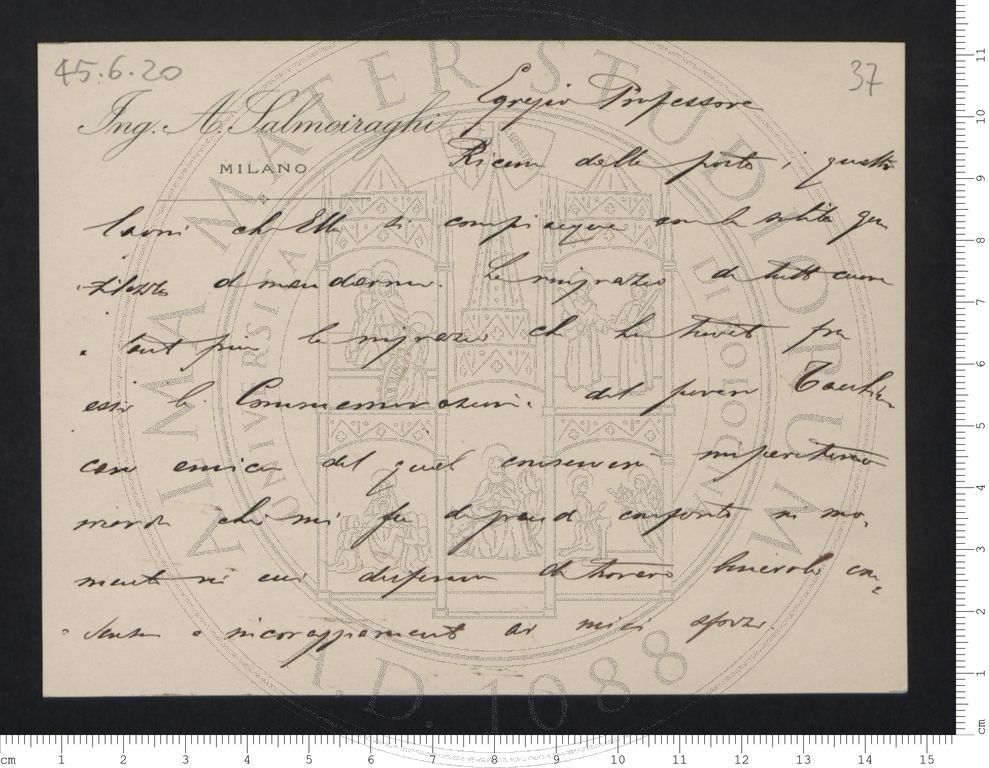 45.6.20
37
Ing. A. Salmoiraghi
MILANO
Egregio Professore
Ricevo dalla posta i quattro
lavori che Ella si compiacque con la solita gen
tilezza di mandarmi. La ringrazio di tutto cuore
e tanto più la ringrazio che ho trovato fra
essi la Commemorazione del povero Tacchini
caro amico del quale conserverò imperituro
ricordo che mi fu di grande conforto nei mo-
menti in cui disperavo di trovare benevolo con-
senso e incoraggiamento ai miei sforzi.
ALMA MATER STUDIORUM
UNIVERSITÀ
A.D. 1088
cm 1 2 3 4 5 6 7 8 9 10 11 12 13 14 15
cm 1 2 3 4 5 6 7 8 9 10 11